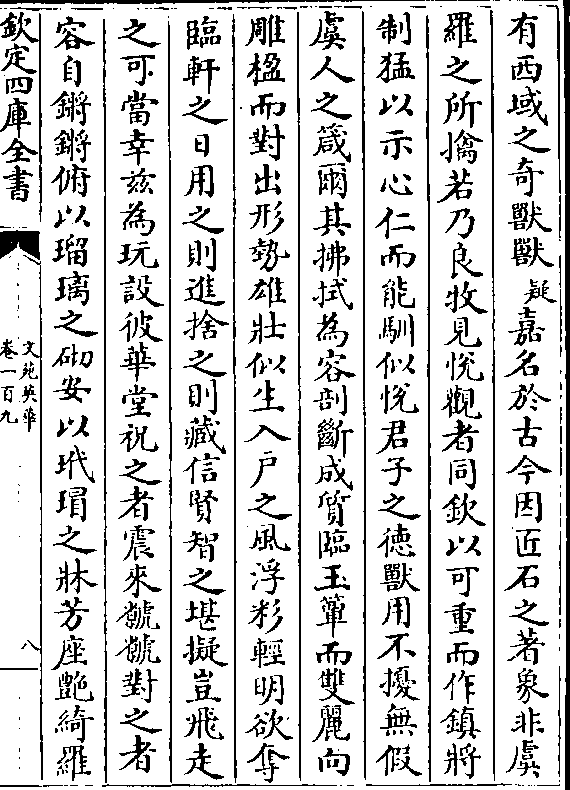 有西域之奇獸獸疑嘉名於古今因匠石之著象非虞
羅之所擒若乃良牧見悦觀者同欽以可重而作鎮將
制猛以示心仁而能馴似悦君子之德獸用不擾無假
虞人之箴爾其拂拭為容剖斷成質臨玉簟而雙麗向
雕楹而對出形勢雄壯似生入戶之風浮彩輕明欲奪
臨軒之日用之則進捨之則藏信賢智之堪擬豈飛走
之可當幸兹為玩設彼華堂祝之者震來虩虩對之者
容自鏘鏘俯以瑠璃之砌安以玳瑁之牀芳座艷綺羅
欽定四庫全書
文苑英華
卷一百九
八